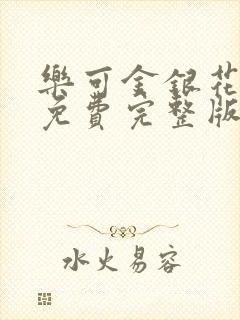 樂可金銀花
免費完整版
水火易容